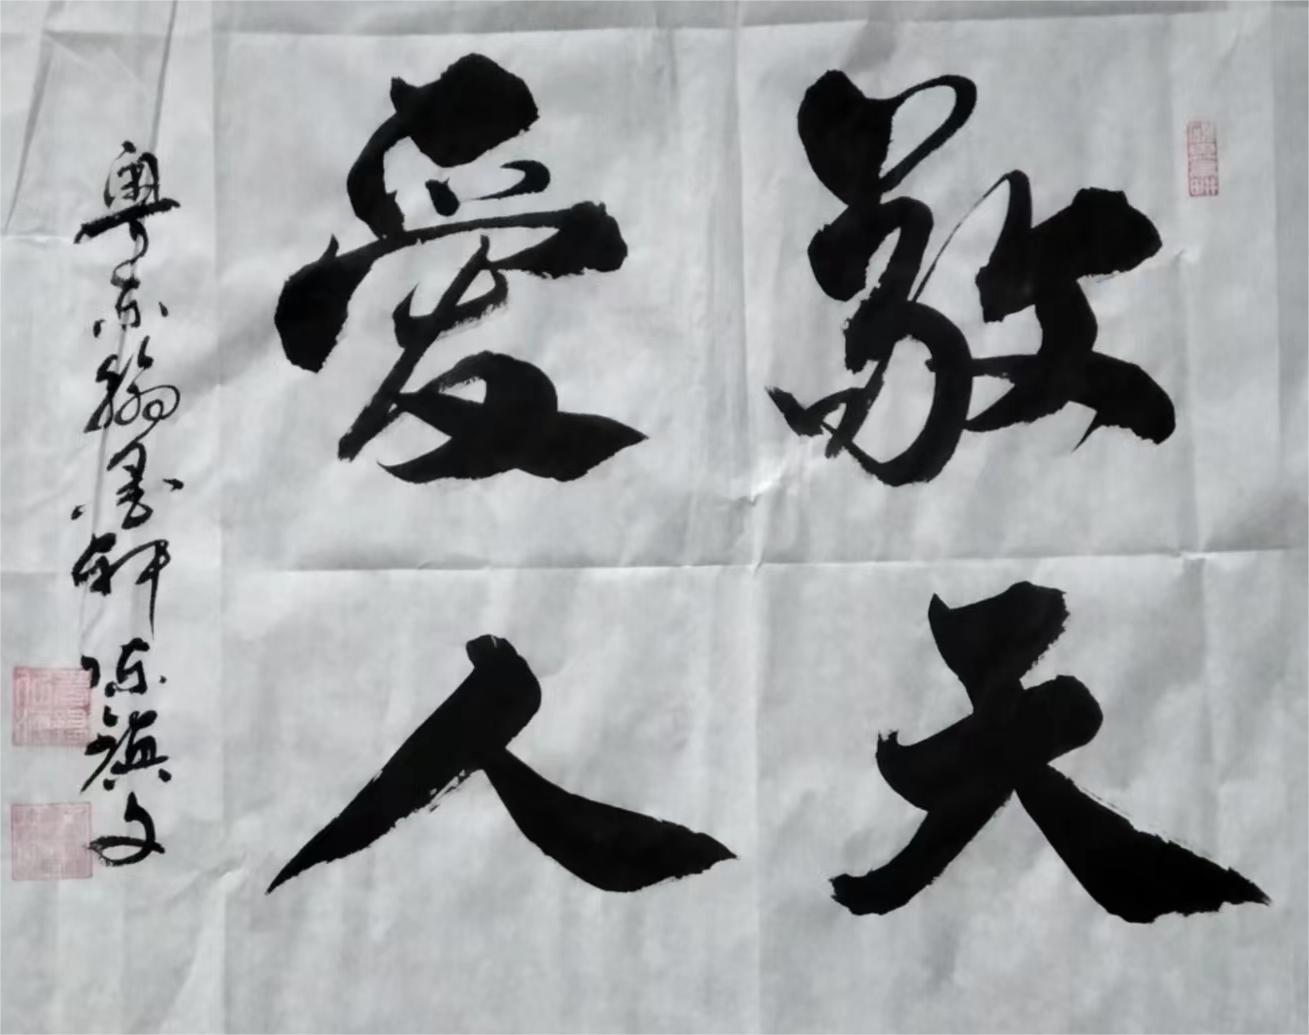 敬天
愛人
粤东翰墨轩陈旗文